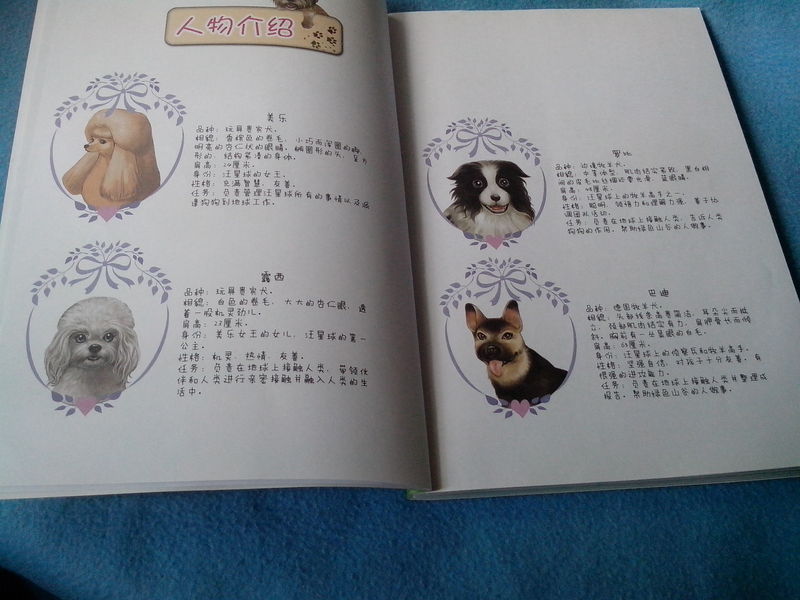 人物介绍
美乐
品种：玩具贵宾犬。
相貌：香槟色的卷毛，小巧而浑圆的脚，
明亮的杏仁状的眼睛，椭圆形的头，呈方
形的、结构紧凑的身体。
肩高：24厘米。
身份：汪星球的女王。
性格：充满智慧、友善。
任务：负责管理汪星球所有的事情以及派
遣狗狗到地球工作。
露西
品种：玩具贵宾犬。
相貌：白色的卷毛，大大的杏仁眼，透
着一股机灵劲儿。
肩高：23厘米。
身份：美乐女王的女儿，汪星球的第一
公主。
性格：机灵、热情、友善。
任务：负责在地球上接触人类，带领伙
伴和人类进行亲密接触并融入人类的生
活中。
罗比
品种：边境牧羊犬。
相貌：中等体型，肌肉结实紧致，黑白相
间的皮毛比丝绸还要光滑，蓝眼睛。
身份：汪星球上的牧羊高手之一。
性格：聪明，领悟力和理解力强，善于协
调团队活动。
任务：负责在地球上接触人类，告诉人类
狗狗的作用，帮助绿色山谷的人做事。
巴迪
品种：德国牧羊犬。
相貌：头部线条高贵简洁，耳朵尖而挺
立，颈部肌肉结实有力，肩胛骨长而倾
斜，胸前有一丛显眼的白毛。
身份：汪星球上的侦察兵和牧羊高手。
性格：坚强自信，对孩子十分友善，有
很强的进攻能力。
任务：负责在地球上接触人类并整理成
报告，帮助绿色山谷的人做事。